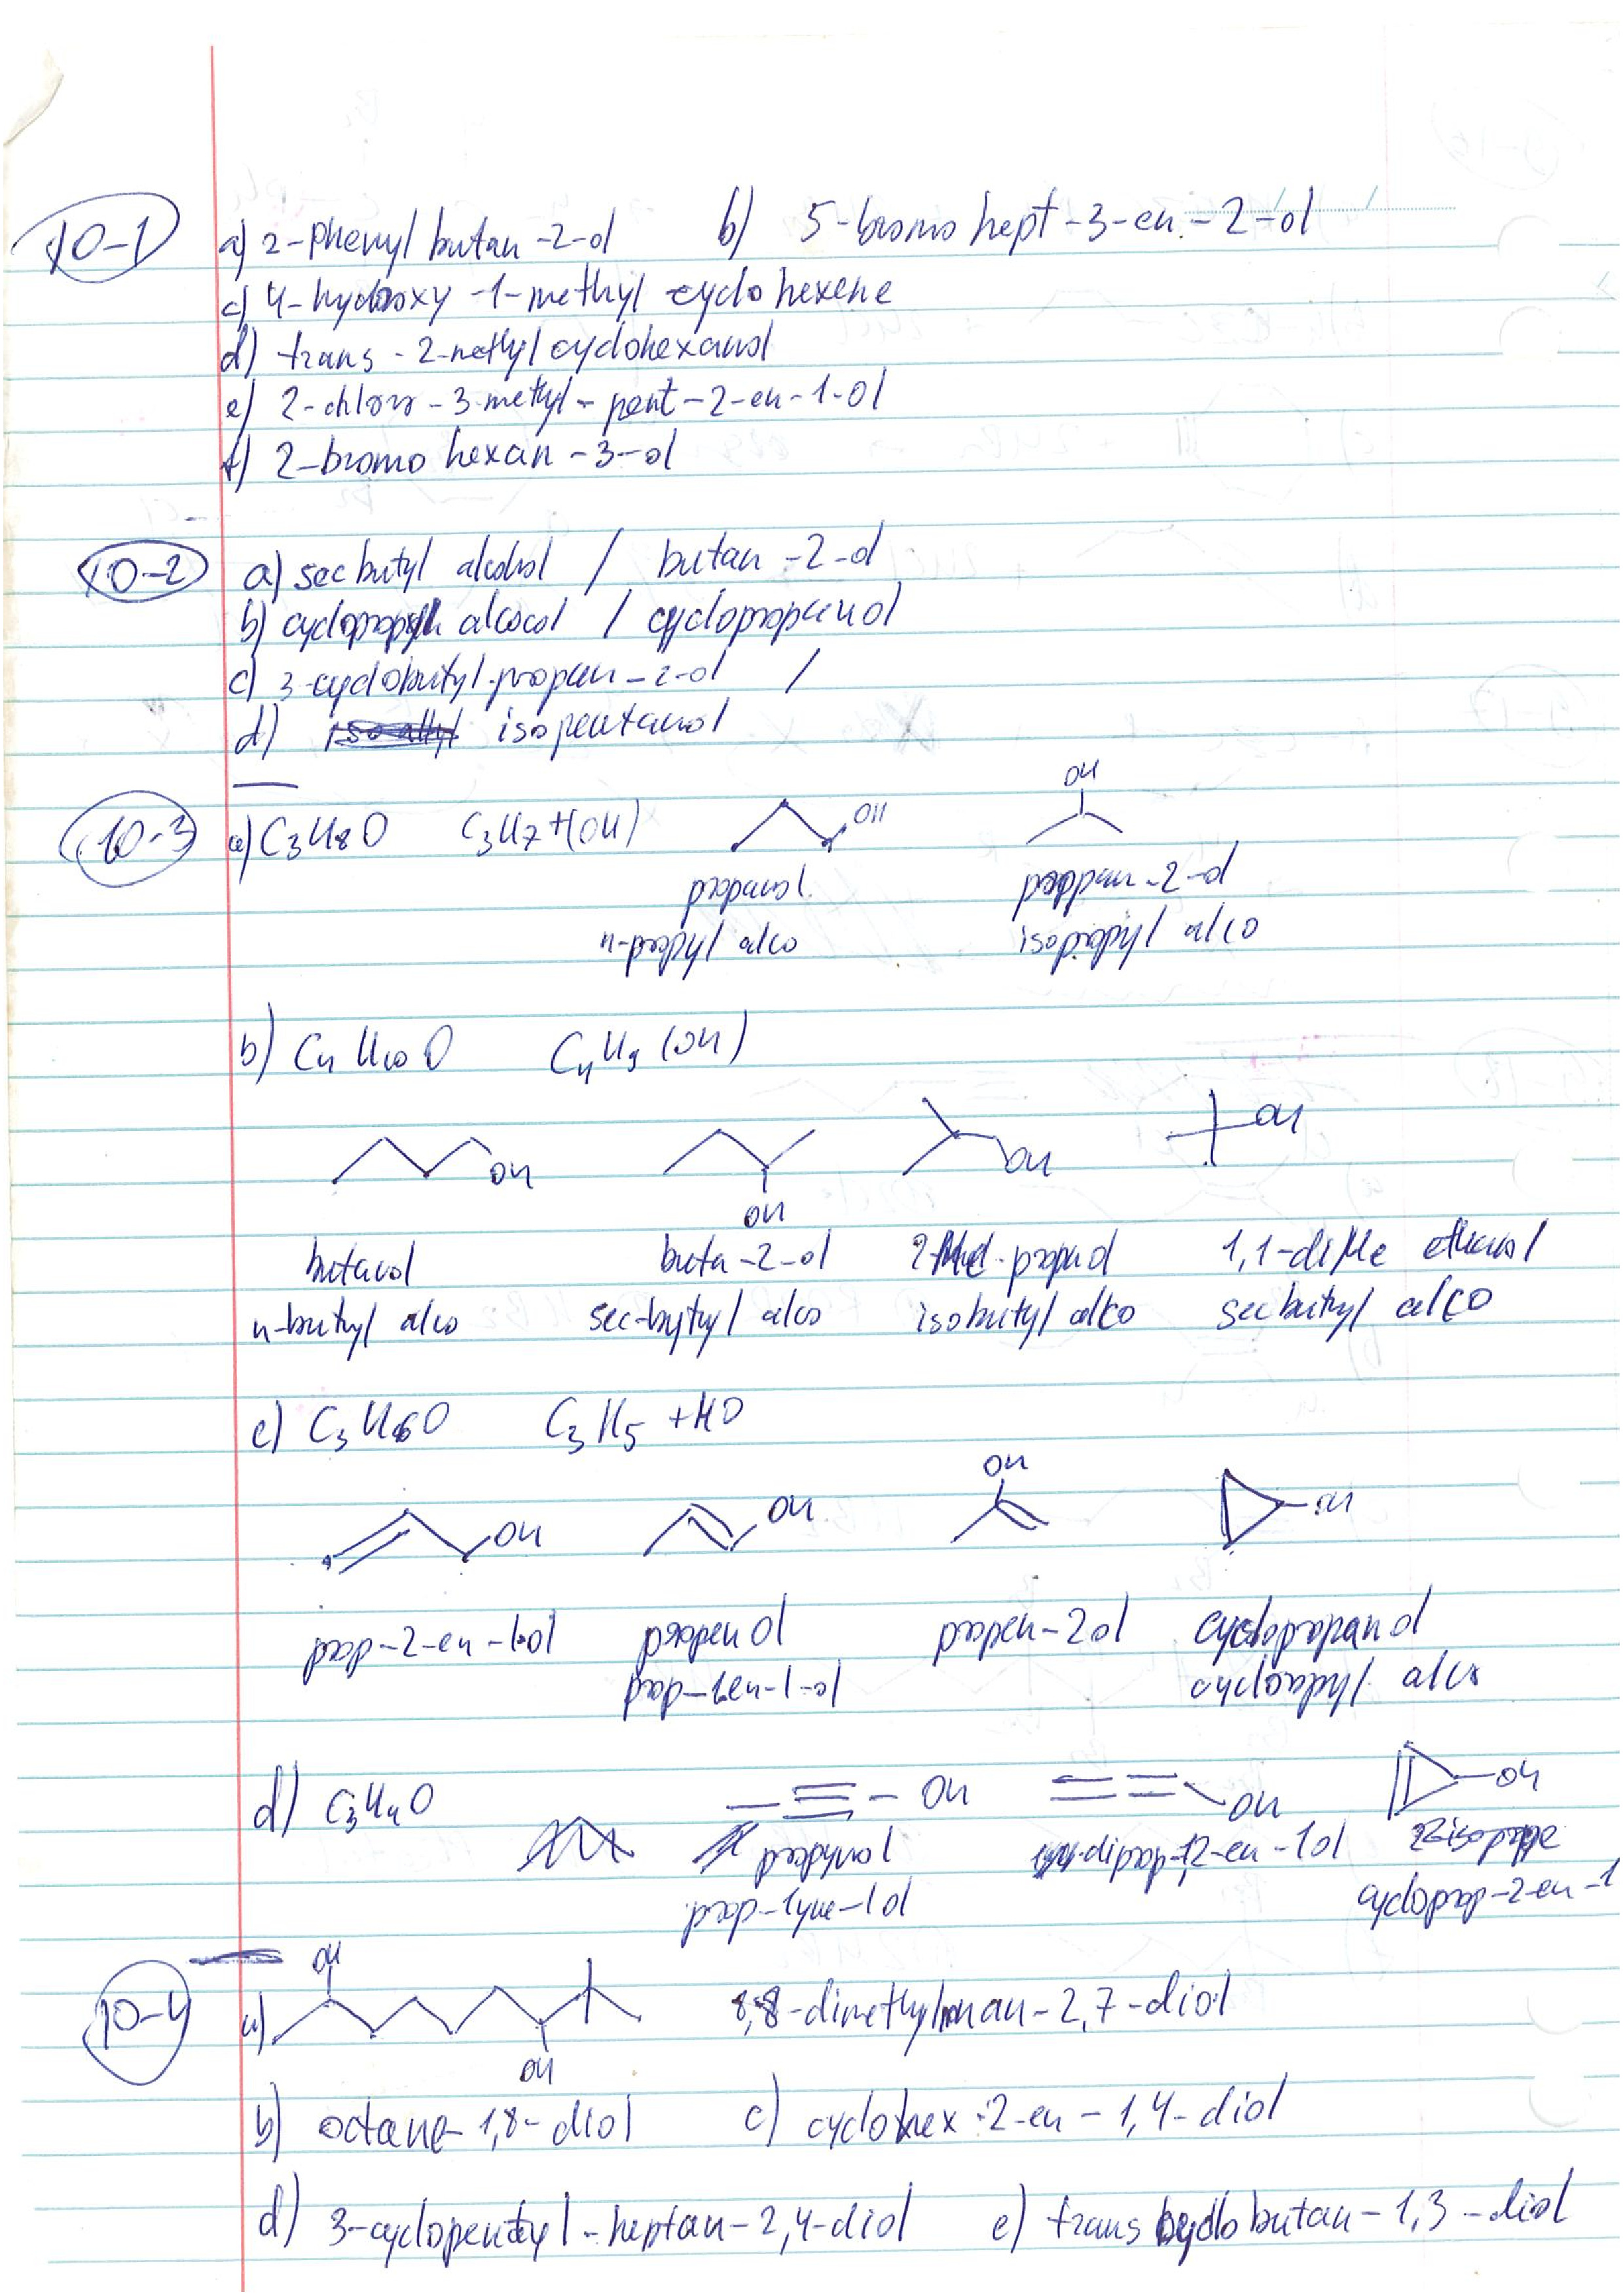 10-1 a) 2-Phenyl butan-2-ol b) 5-bromo hept-3-en-2-ol
c) 4-hydroxy-1-methyl cyclohexene
d) trans-2-methyl cyclohexanol
e) 2-chloro-3-methyl-pent-2-en-1-ol
f) 2-bromo hexan-3-ol
10-2 a) sec butyl alcohol / butan-2-ol
b) cyclopropyl alcocol / cyclopropanol
c) 3-cyclobutyl-propan-2-ol /
d) isopentanol
10-3 a) C3H8O C3H7+(OH) OH OH
propanol propan-2-ol
n-propyl alco isopropyl alco
b) C4H10O C4H9(OH)
OH OH OH OH
butanol buta-2-ol propanol 1,1-diMe ethanol
n-butyl alco sec-bytyl alco isobutyl alco sec butyl alco
c) C3H6O C3H5+HO
OH OH OH OH
prop-2-en-1-ol propenol propen-2ol cyclopropanol
prop-1en-1-ol alco
d) C3H4O OH OH OH
propynol
prop-1yne-1ol cycloprop-2-en-1
10-4 a) OH OH 8,8-dimethylnonan-2,7-diol
b) octane-1,8-diol c) cyclohex-2-en-1,4-diol
d) 3-cyclopentyl-heptan-2,4-diol e) trans cyclobutan-1,3-diol